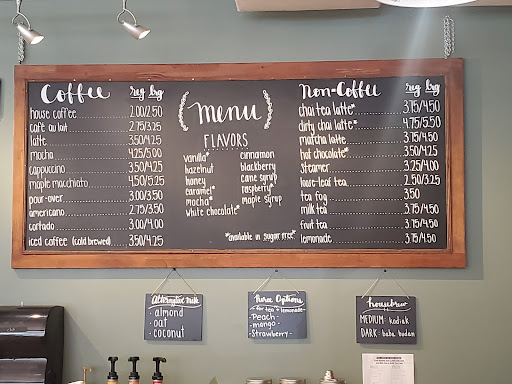 Coffee reg lrg
house coffee 2.00/2.50
café au lait 2.75/3.25
latte 3.50/4.25
mocha 4.25/5.00
cappuccino 3.50/4.25
maple macchiato 4.50/5.25
pour-over 3.00/3.50
americano 2.75/3.50
cortado 3.00/4.00
iced coffee (cold brewed) 3.50/4.25
Menu
FLAVORS
vanilla* cinnamon
hazelnut blackberry
honey cane syrup
caramel* raspberry*
mocha* maple syrup
white chocolate*
*available in sugar free*
Non-Coffee reg lrg
chai tea latte* 3.75/4.50
dirty chai latte* 4.75/5.50
matcha latte 3.75/4.50
hot chocolate* 3.50/4.25
steamer 3.25/4.00
loose-leaf tea 2.50/3.25
tea fog 3.50
milk tea 3.75/4.50
fruit tea 3.75/4.50
lemonade 3.75/4.50
Alternative milk
· almond
· oat
· coconut
Puree Options
- for tea + lemonade -
- Peach -
- mango -
- Strawberry -
housebrew
MEDIUM- kodiak
DARK- baba budan